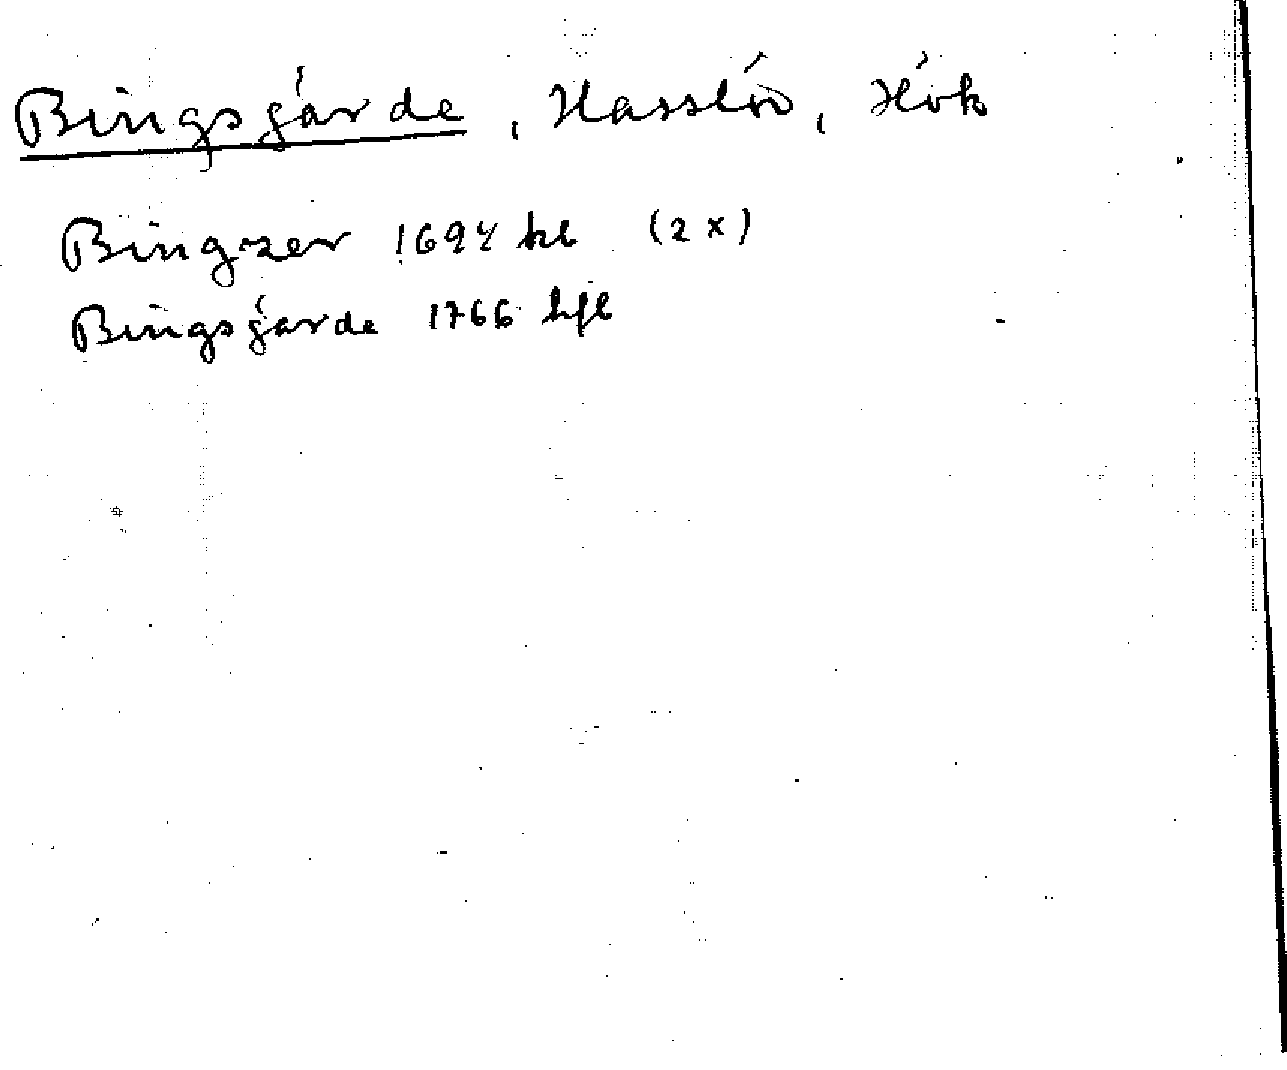 Bingsgärde, Hasslöv, Hök
Bingzer 1694 kl (2x)
Bingsgärde 1766 hfl